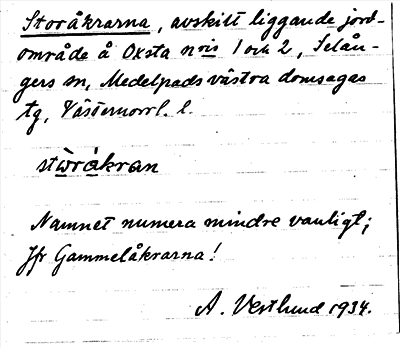 Storåkrarna, avskilt liggande jord-
område å Oxsta nris 1 och 2, Selån-
gers sn, Medelpads västra domsagas
tg, Västernorrl. l.
stòràkran
Namnet numera mindre vanligt;
Jfr Gammelåkrarna!
A. Vestlund 1934.